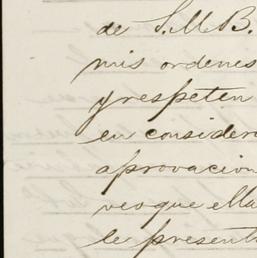 de S. M. B.
mis ordenes
y respeten
en consider
aprovacion
veo que ella
le present